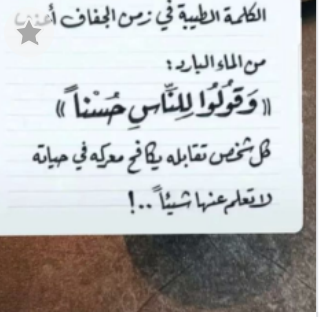 الكلمة الطيبة في زمن الجفاف
من الماء البارد :
(( وَقُولُوا لِلنَّاسِ حُسْناً ))
كل شخص تقابله يكافح معركه في حياته
لا تعلم عنها شيئاً ..!